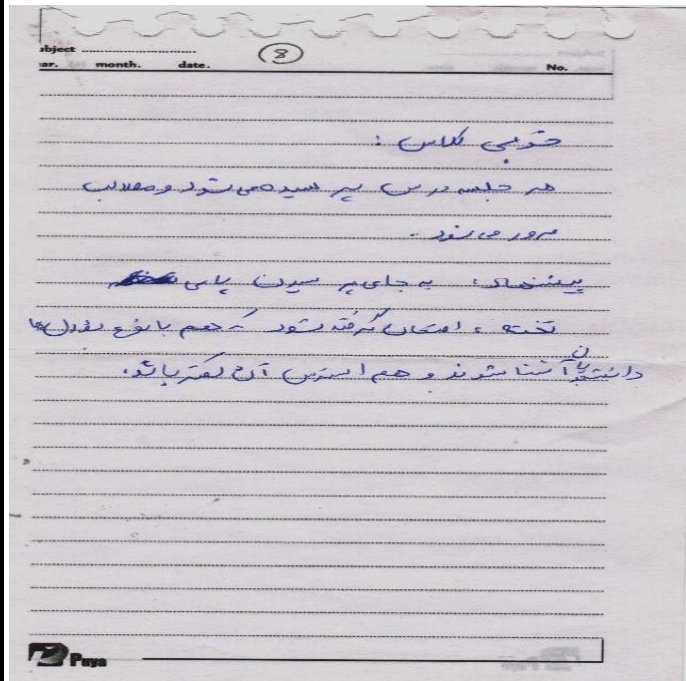 ubject
8
ear. month. date. No.
خوبی کلاس :
هر جلسه درس پرسیده می شود و مطالب
مرور می شود .
پیشنهاد : به جای پرسیدن پای
تخته ، امتحان گرفته شود که هم با نوع سؤال ها
دانشجویان آشنا شوند و هم استرس آن کمتر باشد .
Puya